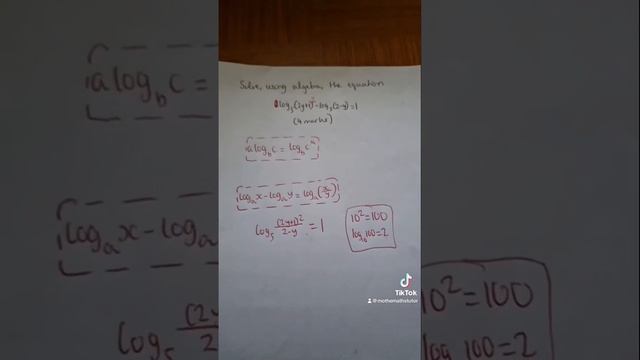 Solve, using algebra, the equation
log₅(2y+1)² - log₅(2-y) = 1
(4 marks)
alog_b c = log_b c^a
logₐx - logₐy = logₐ(x/y)
log₅ (2y+1)²/2-y = 1
10² = 100
log₁₀100 = 2
TikTok
@mothemathstutor
alog_b c =
logₐx - log
log₅ (2y
10² = 100
log 100 = 2